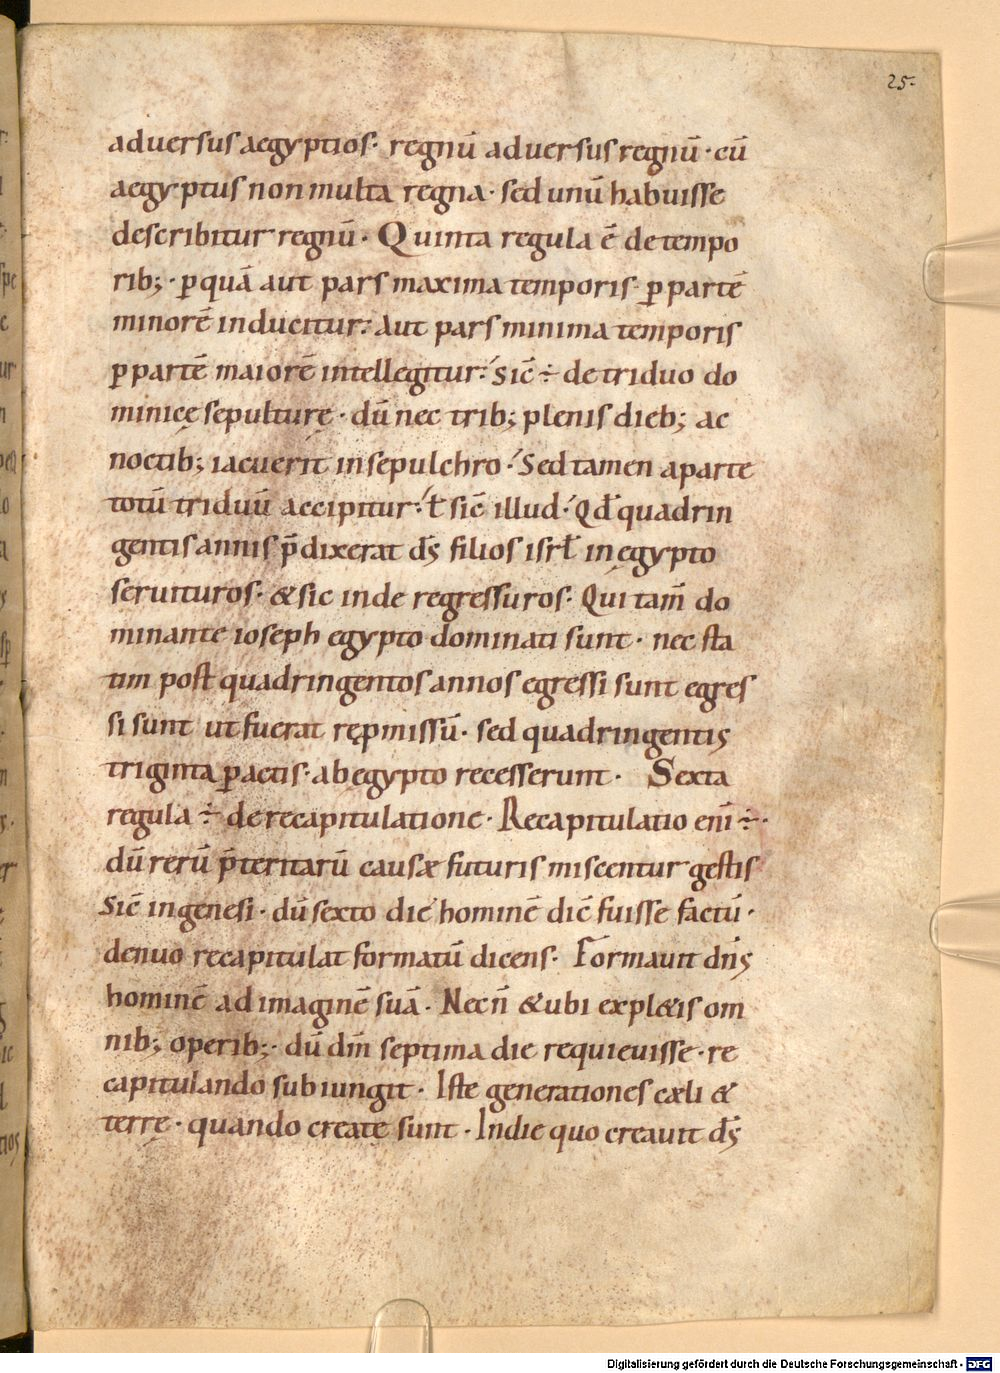 25.
aduersus aegyptios· regnū aduersus regnū· cū
aegyptus non multa regna· sed unū habuisse
describitur regnū· Quinta regula ē de tempo
rib;· ꝑ quā aut pars maxima temporis ꝑ partē
minorē inducitur: Aut pars minima temporis
ꝑ partē maiorē intellegitur: Sic̄ ÷ de triduo do
minicę sepulturę· dū nec trib; plenis dieb; ac
noctib; iacuerit in sepulchro· Sed tamen a parte
totū triduū accipitur· ł sic̄ illud· Qđ quadrin
gentis annis p̄dixerat ds̄ filios isrł in ęgypto
seruituros· & sic inde regressuros· Qui tam̄ do
minante ioseph egypto dominati sunt· nec sta
tim post quadringentos annos egressi sunt egres
si sunt ut fuerat rępmissū· sed quadringentis
triginta ꝑactis· ab egypto recesserunt· Sexta
regula ÷ de recapitulatione· Recapitulatio eni̅ ÷·
dū rerū p̄teritarū causæ futuris miscentur gestis
Sic̄ in genesi· dū sexto die hominē dic̄ fuisse factū·
denuo recapitulat formatū dicens· Formauit dn̄s
hominē ad imaginē suā· Necn̄ & ubi expl&is om
nib; operib;· dū dm̄ septima die requieuisse· re
capitulando subiungit· Iste generationes cæli &
terrę· quando create sunt· In die quo creauit ds̄
Digitalisierung gefördert durch die Deutsche Forschungsgemeinschaft - DFG